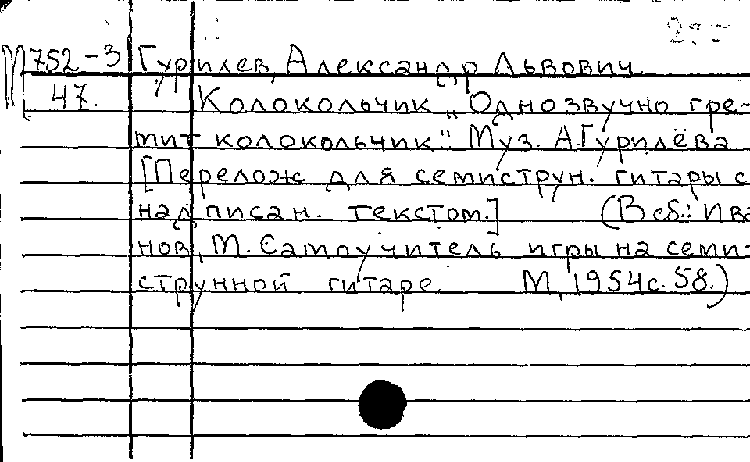 М752-3 Гурилев, Александр Львович
47. Колокольчик „Однозвучно гре-
мит колокольчик". Муз. А Гурилёва
[Перелож для семиструн. гитары с
надписан. текстом.] (В сб.: Ива
нов, М. Самоучитель игры на семи-
струнной гитаре. М, 1954 с. 58.)